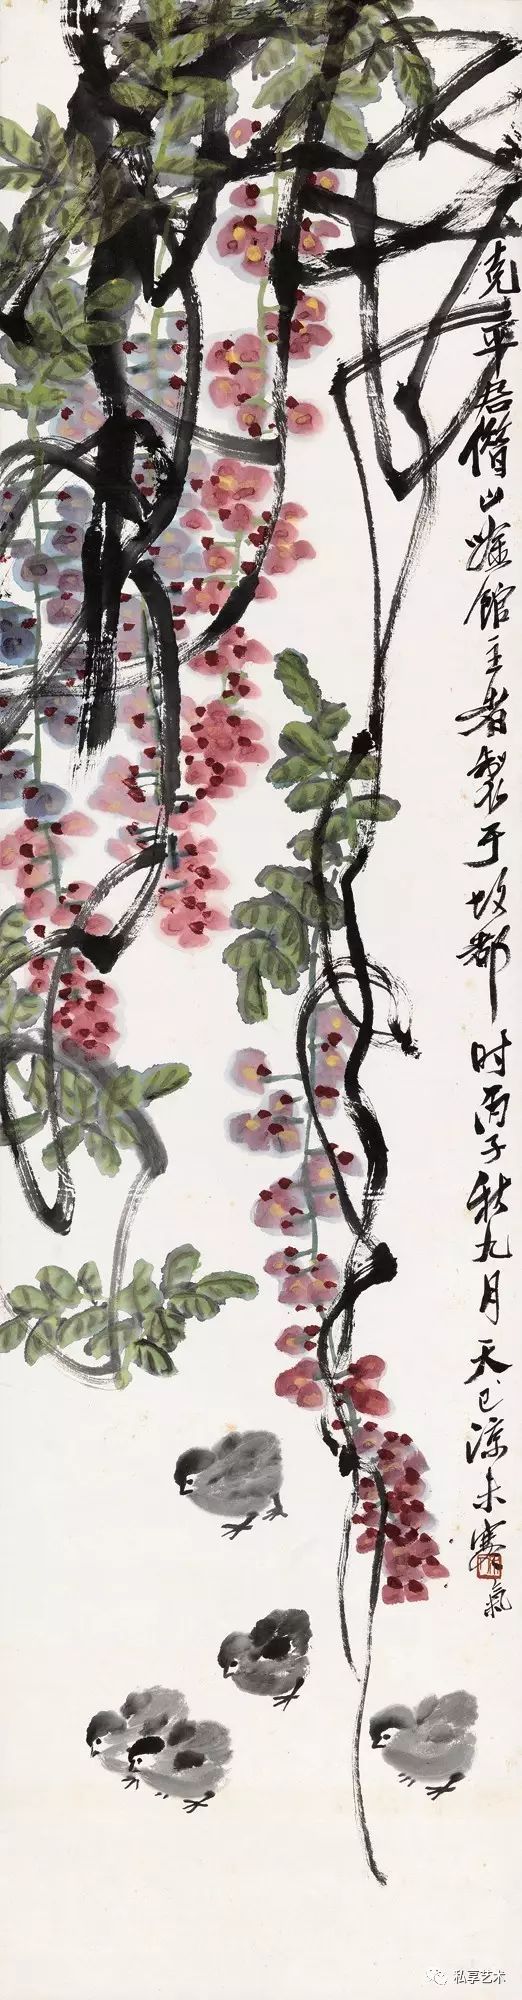 克平君借山吟馆主者製于故都时丙子秋九月天已凉未寒气
私享艺术